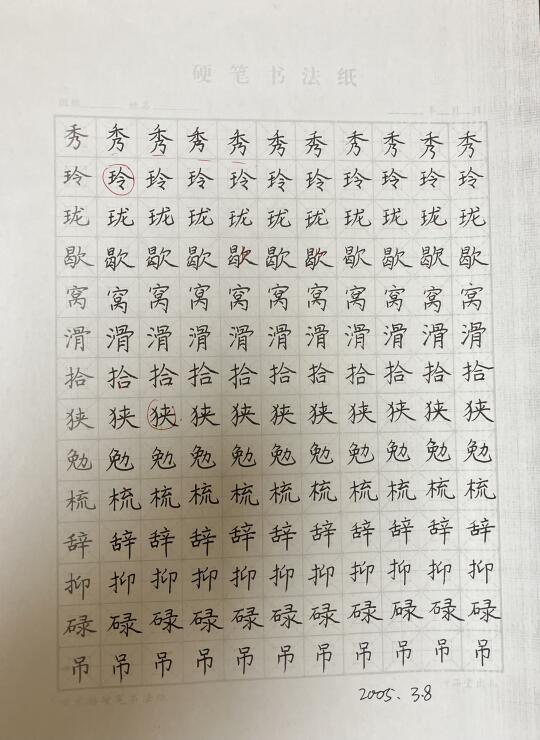 硬笔书法纸
秀秀秀秀秀秀秀秀秀秀秀
玲玲玲玲玲玲玲玲玲玲玲
珑珑珑珑珑珑珑珑珑珑珑
歇歇歇歇歇歇歇歇歇歇歇
窝窝窝窝窝窝窝窝窝窝窝
滑滑滑滑滑滑滑滑滑滑滑
拾拾拾拾拾拾拾拾拾拾拾
狭狭狭狭狭狭狭狭狭狭狭
勉勉勉勉勉勉勉勉勉勉勉
梳梳梳梳梳梳梳梳梳梳梳
辞辞辞辞辞辞辞辞辞辞辞
抑抑抑抑抑抑抑抑抑抑抑
碌碌碌碌碌碌碌碌碌碌碌
吊吊吊吊吊吊吊吊吊吊吊
2005.3.8